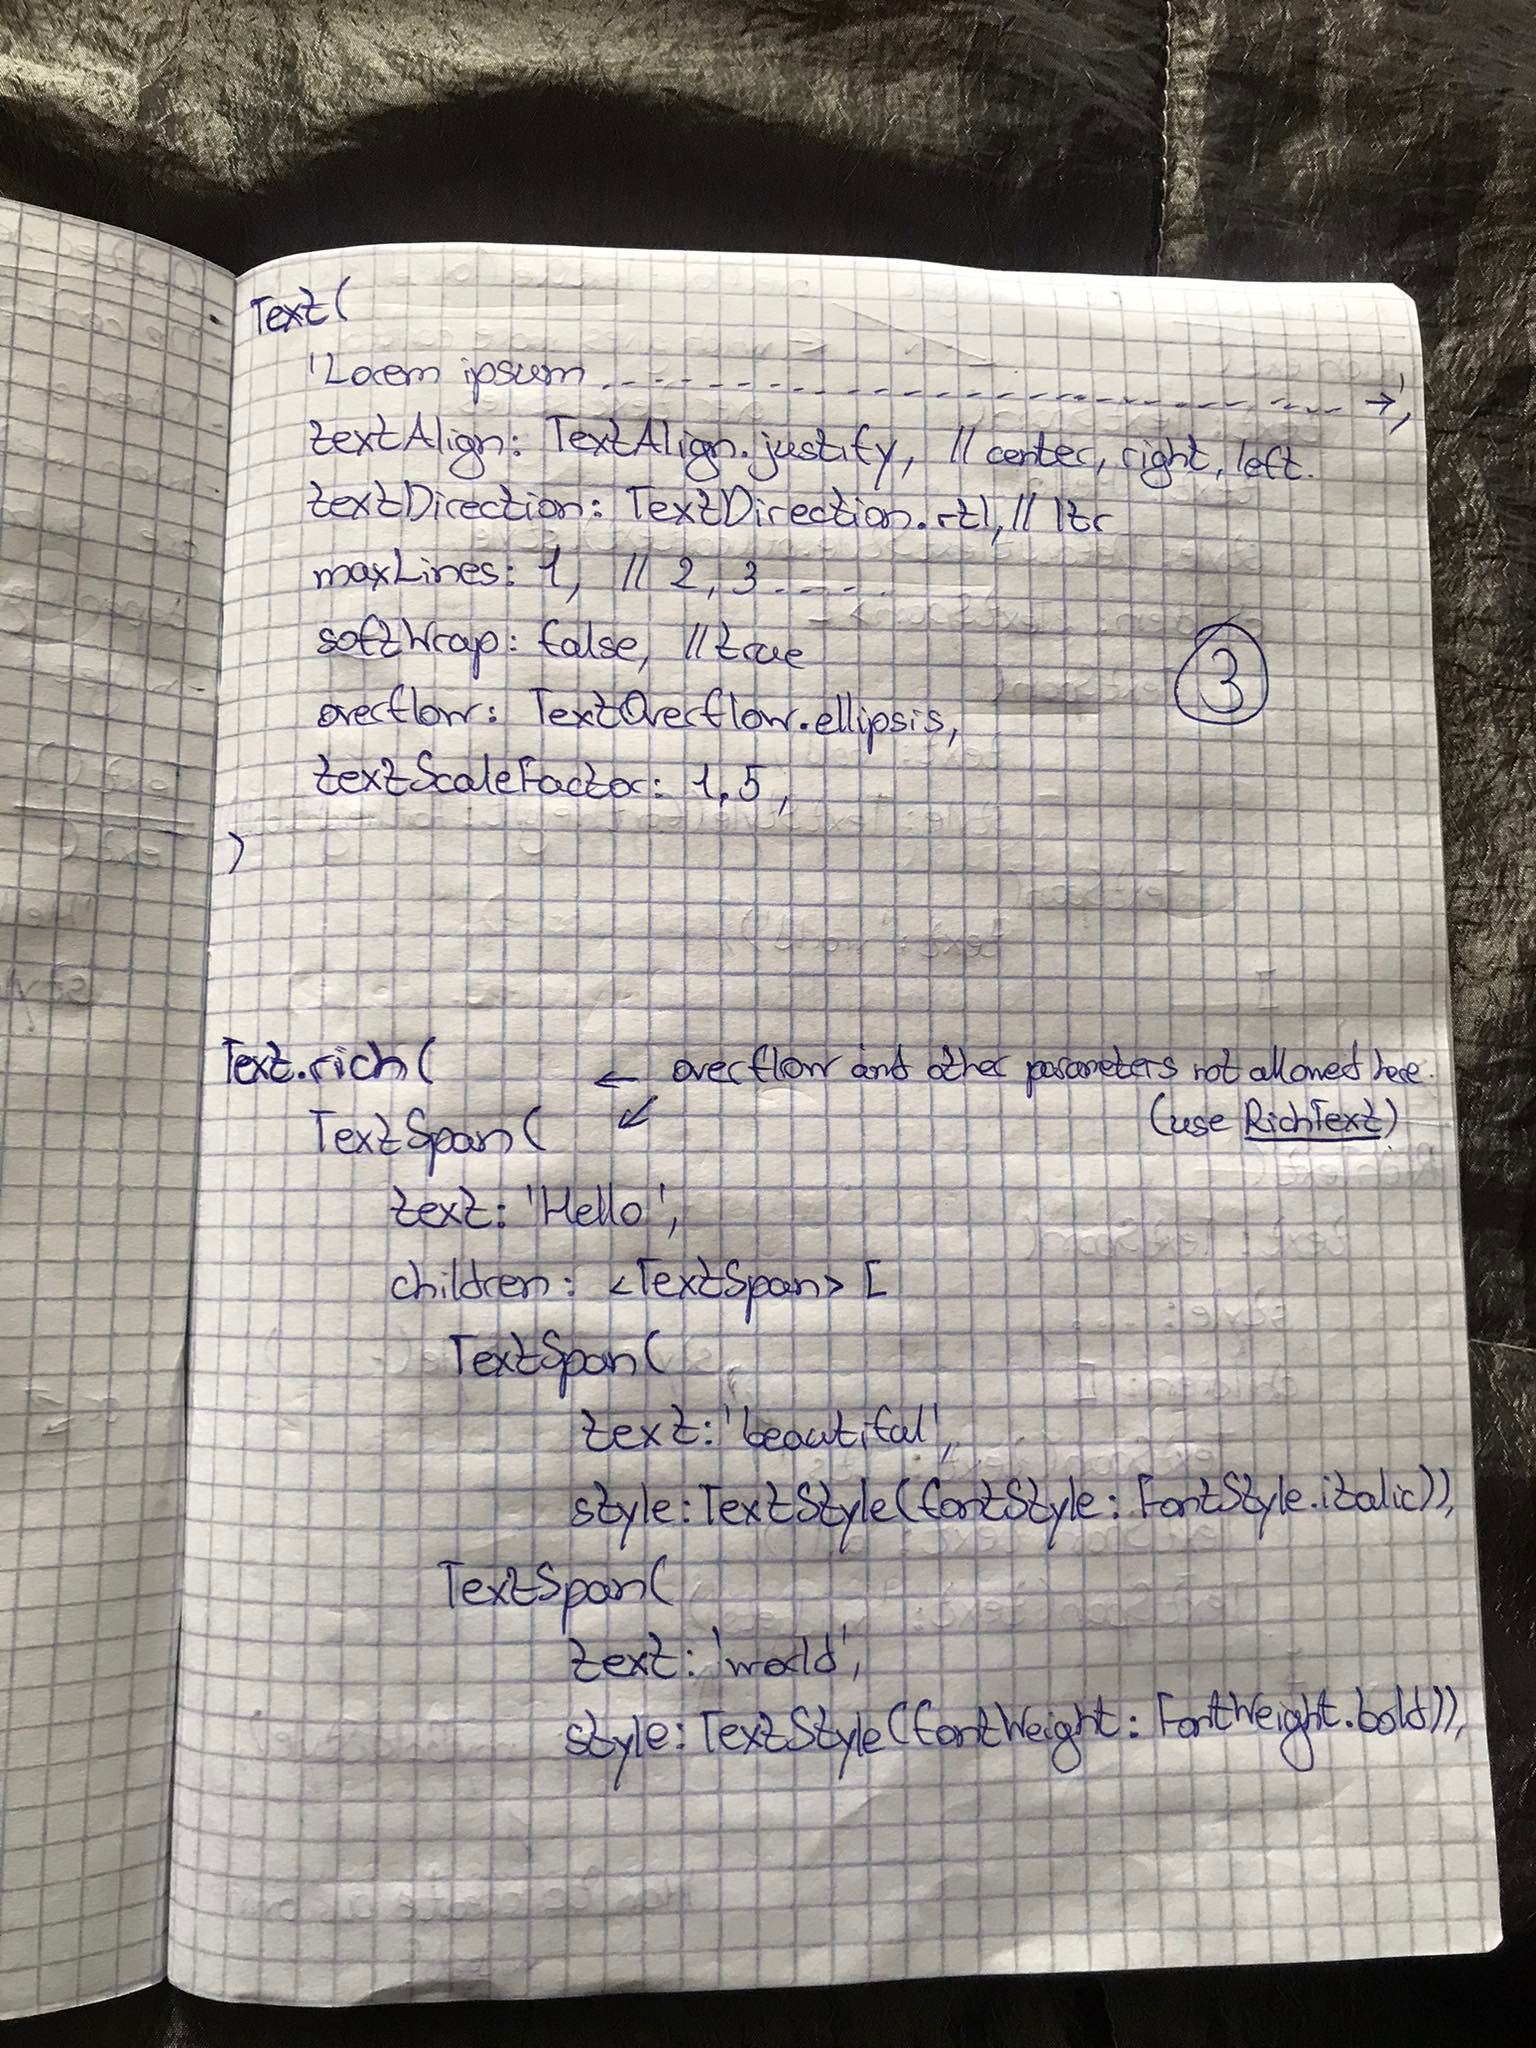 Text(
'Lorem ipsum ----------------------->',
textAlign: TextAlign.justify, // center, right, left.
textDirection: TextDirection.rtl, // ltr
maxLines: 1, // 2, 3 -----
softWrap: false, // true
3
overflow: TextOverflow.ellipsis,
textScaleFactor: 1.5,
)
Text.rich( ← overflow and other parameters not allowed here.
TextSpan( ↙ (use RichText)
text: 'Hello',
children: <TextSpan> [
TextSpan(
text: 'beautiful',
style: TextStyle(fontStyle: FontStyle.italic)),
TextSpan(
text: 'world',
style: TextStyle(fontWeight: FontWeight.bold)),